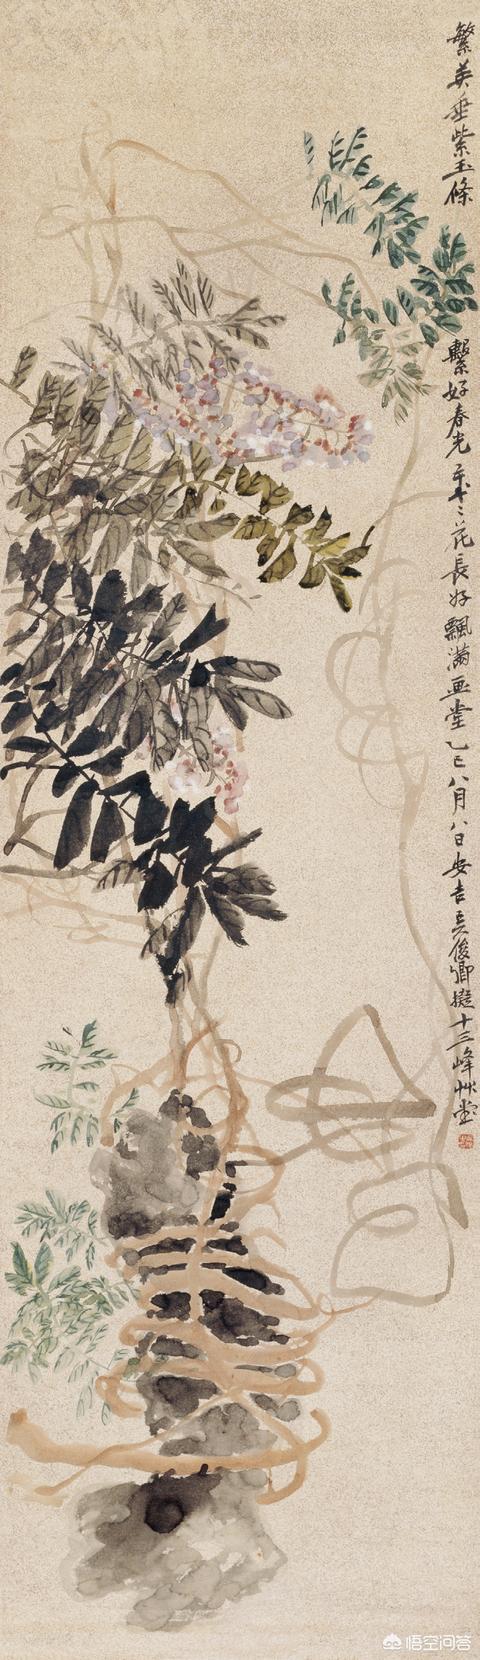 繁英垂紫玉條繫好春光歲〻花長好飄滿画堂乙巳八月八日安吉吳俊卿擬十三峰艸堂
悟空问答